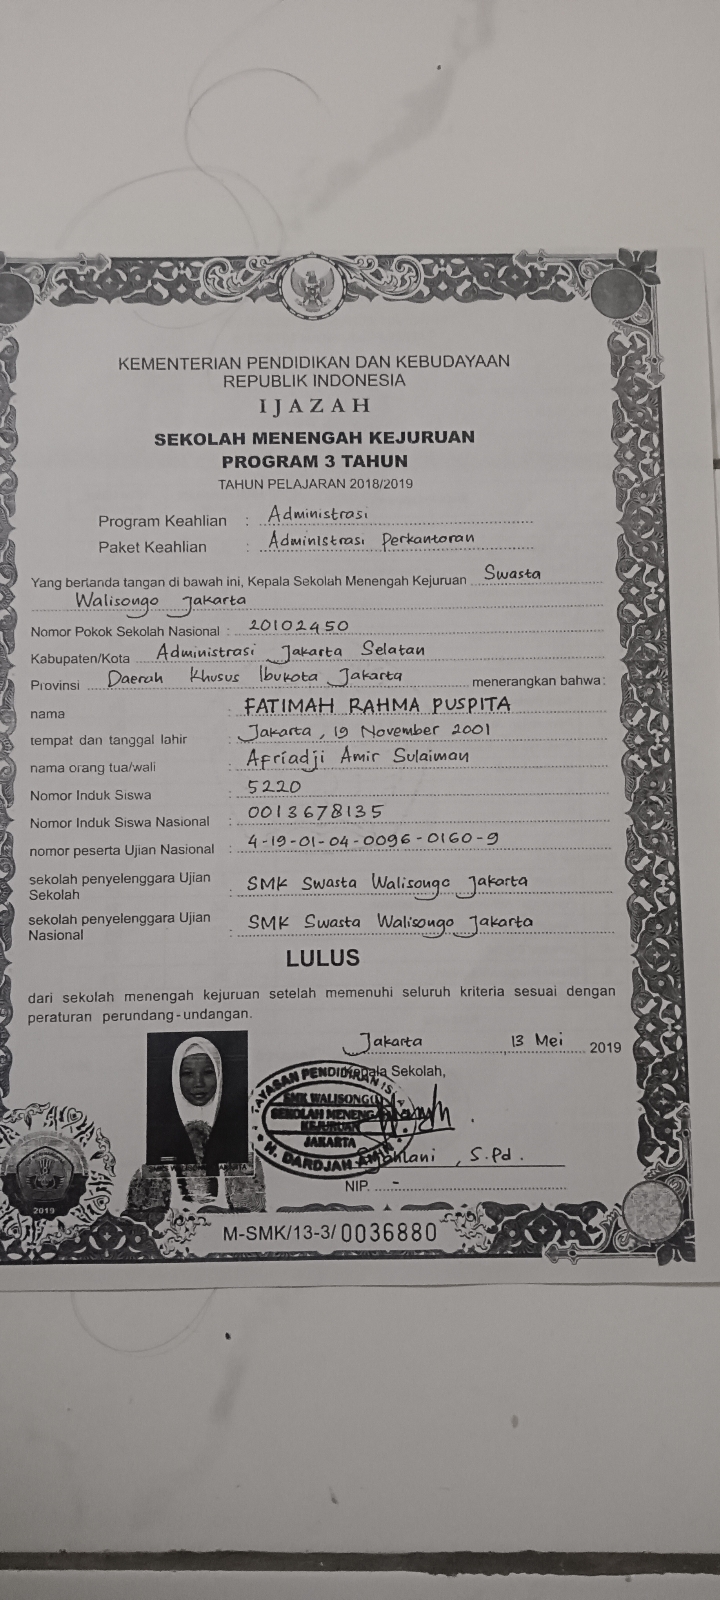 KEMENTERIAN PENDIDIKAN DAN KEBUDAYAAN
REPUBLIK INDONESIA
IJAZAH
SEKOLAH MENENGAH KEJURUAN
PROGRAM 3 TAHUN
TAHUN PELAJARAN 2018/2019
Program Keahlian : Administrasi
Paket Keahlian : Administrasi Perkantoran
Yang bertanda tangan di bawah ini, Kepala Sekolah Menengah Kejuruan Swasta
Walisongo Jakarta
Nomor Pokok Sekolah Nasional : 20102450
Kabupaten/Kota Administrasi Jakarta Selatan
Provinsi Daerah Khusus Ibukota Jakarta menerangkan bahwa:
nama : FATIMAH RAHMA PUSPITA
tempat dan tanggal lahir : Jakarta, 19 November 2001
nama orang tua/wali : Afriadji Amir Sulaiman
Nomor Induk Siswa : 5220
Nomor Induk Siswa Nasional : 0013678135
nomor peserta Ujian Nasional : 4-19-01-04-0096-0160-9
sekolah penyelenggara Ujian
Sekolah : SMK Swasta Walisongo Jakarta
sekolah penyelenggara Ujian
Nasional : SMK Swasta Walisongo Jakarta
LULUS
dari sekolah menengah kejuruan setelah memenuhi seluruh kriteria sesuai dengan
peraturan perundang-undangan.
Jakarta, 13 Mei 2019
Kepala Sekolah,
YAYASAN PENDIDIKAN IS
SMK WALISONGO
SEKOLAH MENENGAH
KEJURUAN
JAKARTA
H. DARDJAH AMIN
S.Pd.
NIP. -
2019
M-SMK/13-3/0036880